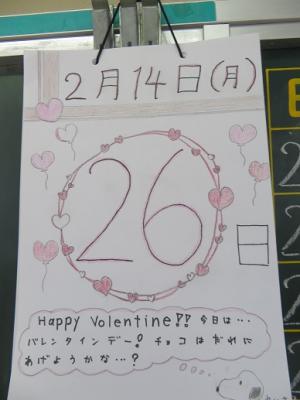 2月14日(月)
26
日
Happy Volentine!! 今日は…
バレンタインデー! チョコはだれに
あげようかな…?